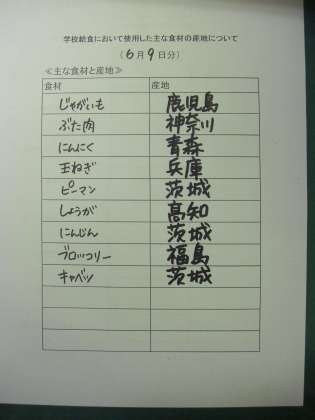 学校給食において使用した主な食材の産地について
(6月9日分)
≪主な食材と産地≫
食材 産地
じゃがいも 鹿児島
ぶた肉 神奈川
にんにく 青森
玉ねぎ 兵庫
ピーマン 茨城
しょうが 高知
にんじん 茨城
ブロッコリー 福島
キャベツ 茨城